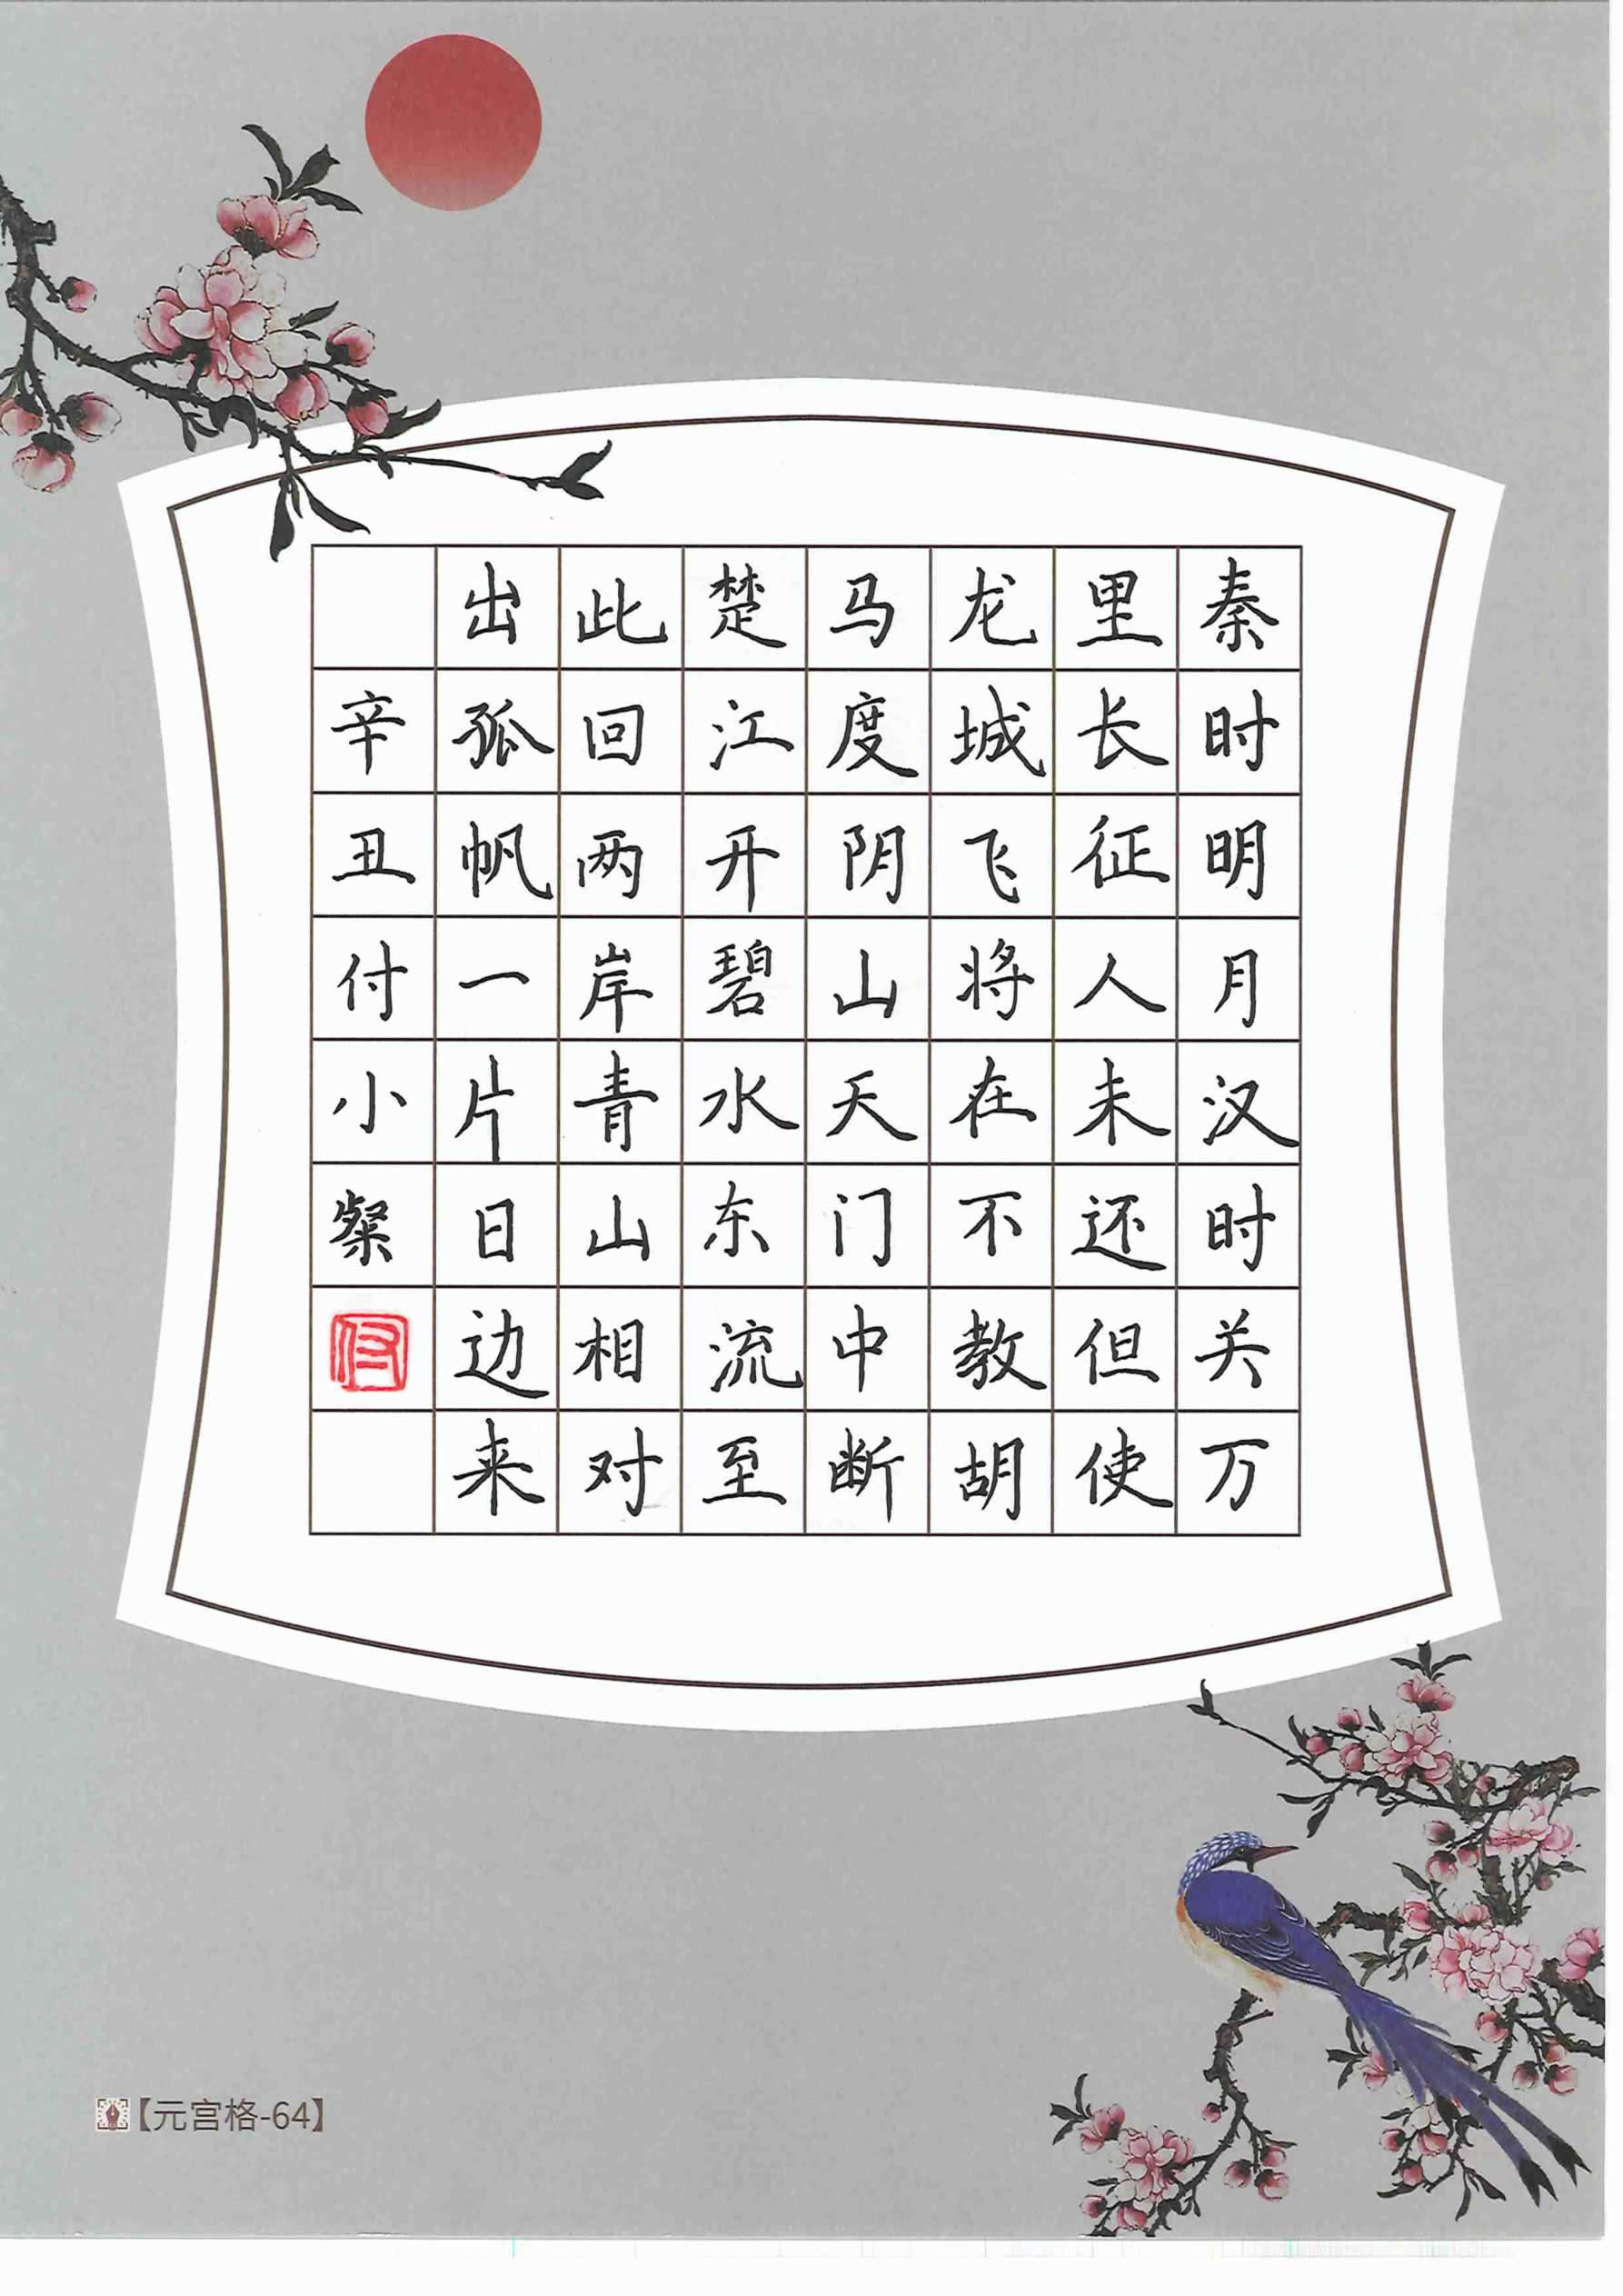 秦时明月汉时关万
里长征人未还但使
龙城飞将在不教胡
马度阴山天门中断
楚江开碧水东流至
此回两岸青山相对
出孤帆一片日边来
辛丑付小粲
付
【元宫格-64】